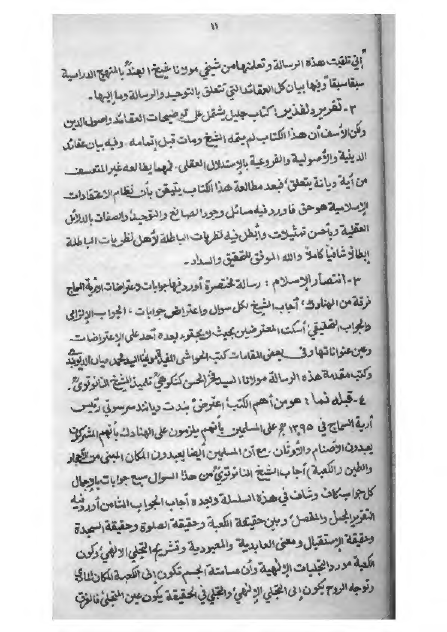 ١١
"إني تلقيت هذه الرسالة وتعلمتها من شيخي مولانا شيخ الهند بالمنهج الدراسية
سبقا سبقا وفيها بيان كل العقائد التي تتعلق بالتوحيد والرسالة وما إليها.
٢- تقرير دلفذير: كتاب جليل يشتمل على توضيحات العقائد واصول الدين
ولكن الأسف أن هذا الكتاب لم يتمه الشيخ ومات قبل إتمامه. وفيه بيان عقائد
الدينية والأصولية والفروعية بالإستدلال العقلي. فمهما يطالعه غير المتعسف
من أية ديانة يتعلق، فبعد مطالعة هذا الكتاب يتيقن بأن نظام الاعتقادات
الإسلامية هو حق فأورد فيه مسائل وجود الصانع والتوحيد والصفات بالدلائل
العقلية وبأحسن تمثيلات، وأبطل فيه نظريات الباطلة لأهل نظريات الباطلة
إبطالا شافيا كاملا والله الموفق للتحقيق والسداد.
٣- انتصار الإسلام: رسالة مختصرة أورد فيها جوابات واعتراضات الآرية سماج
فرقة من الهنادك، أجاب الشيخ لكل سوال واعتراض جوابات: الجواب الإلزامي
والجواب التحقيقي، أسكت المعترضين بحيث لا يعود بعده أحد على الإعتراضات.
وعين عنواناتها وفي بعض المقامات كتب الحواشي مولانا السيد محمد ميان الديوبندي
وكتب مقدمة هذه الرسالة مولانا السيد فخر الحسن كنكوهي تلميذ الشيخ النانوتوي.
٤- قبله نما: هو من أهم الكتب، إعترض بندت ديانند سرسوتي رئيس
أرية السماج في ١٢٩٥ هج على المسلمين بأنهم يلزمون على الهنادك بأنهم المشركون
يعبدون الأصنام والأوثان، مع أن المسلمين أيضا يعبدون المكان المبنى من الأحجار
والطين (الكعبة) أجاب الشيخ النانوتوي من هذا السوال سبع جوابات بالإجمال
كل جواب كاف وشاف في هذه السلسلة وبعده أجاب الجواب الثامن أورد فيه
التقرير المجمل والمفصل وبين حقيقة الكعبة وحقيقة الصلوة وحقيقة السجدة
وحقيقة الإستقبال ومعنى العابدية والمعبودية وتشريح التجلي الالهي وكون
الكعبة مورد التجليات الإلهية وأن مسامتة الجسم تكون إلى الكعبة المكان المادي
وتوجه الروح يكون إلى التجلي الإلهي والتجلي في الحقيقة يكون عين المتجلي فالفرق